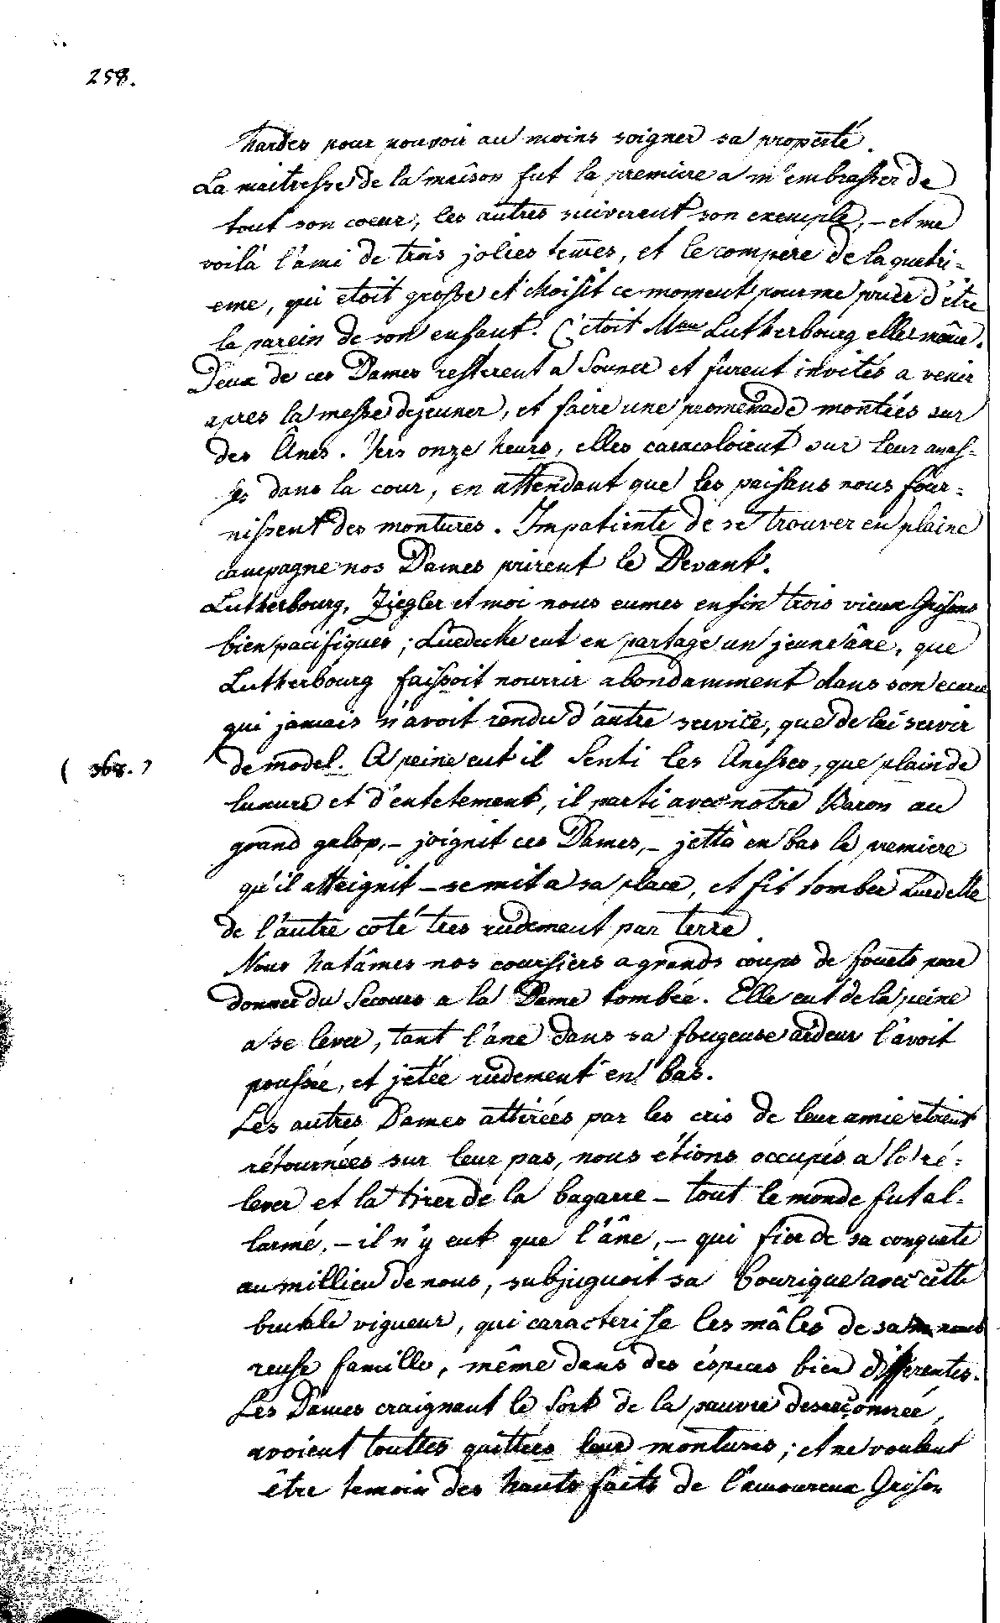 258.
hardes pour pouvoir au moins soigner sa propreté.
La maitresse de la mâison fut la premiere a m'embrasser de
tout son coeur, les autres suiverent son exemple, – et me
voilà l'ami de trois jolies femmes, et le compère de la quatri=
eme, qui etoit grosse et choisit ce moment pour me prier d'être
le parein de son enfant. C'etoit Mme Lutherbourg elle même.
Deux de ces Dames resterent a Souper et furent invités a venir
apres la messe dejeuner, et faire une promenade montées sur
des Ânes. Vers onze heurs, elles caracoloient sur leur anes=
ses dans la cour, en attendant que les paisans nous four=
nissent des montures. Impatiente de se trouver en plaine
campagne nos Dames prirent le Devant.
Lutherbourg, Ziegler et moi nous eumes enfin trois vieux Grisons
bien pacifiques; Luedecke eut en partage un jeune âne, que
Lutherbourg faissoit nourrir abondamment dans son ecurie
qui jamais n'avoit rendu d'autre service, que de lui servir
( 368. ) de model. A peine eut il senti les Anesses, que plain de
luxure et d'entetement, il parti avec notre Baron au
grand galop, – joignit ces Dames, – jetta en bas la premiere
qu'il atteignit – se mit a sa place, et fit tomber Luedeke
de l'autre coté tres rudement par terre.
Nous hatâmes nos coursiers a grands coups de fouets pour
donner du Secours a la Dame tombée. Elle eut de la peine
a se lever, tant l'âne dans sa fougeuse ardeur l'avoit
poussée, et jetée rudement en bas.
Les autres Dames attirées par les cris de leur amie etoient
rétournées sur leur pas, nous étions occupés a la ré=
lever et la tirer de la bagarre – tout le monde fut al=
larmé, – il n'y eut que l'âne, – qui fier de sa conquete
au millieu de nous, subjuguoit sa bourique avec cette
brutale vigueur, qui caracterise les mâles de sa nomb
reuse famille, même dans des éspeces bien differentes.
Les Dames craignant le sort de la pauvre desarçonnée,
avoient touttes quittées leur montures; et ne voulant
être temoin des hauts faits de l'amoureux Grison